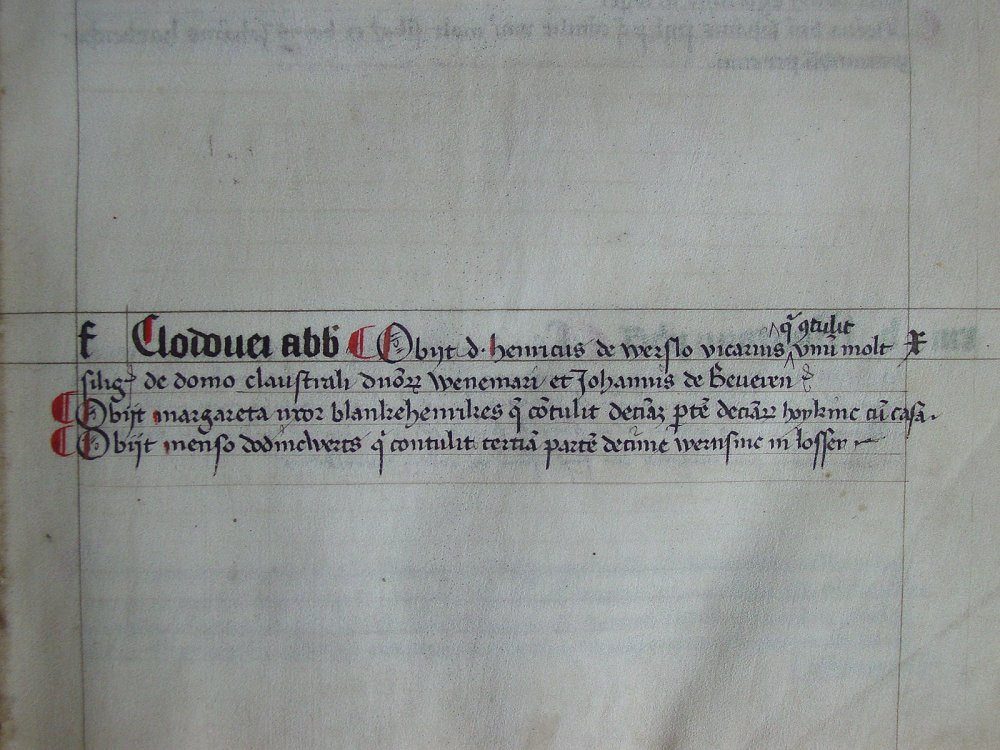 q̄ ꝯtulit
f Clodouei abb̄ Obijt d. henricus de werslo vicarius vnū molt x
siliḡ de domo claustrali dnōꝝ wenemari et Johannis de Beueren
Obijt margareta uxor blankehenrikes q̄ cōtulit deciāꝫ ꝑtē deciāꝝ hoykinc cū casa.
Obijt menso dodincwerts q̄ contulit terciā partē decime wernsinc in losser